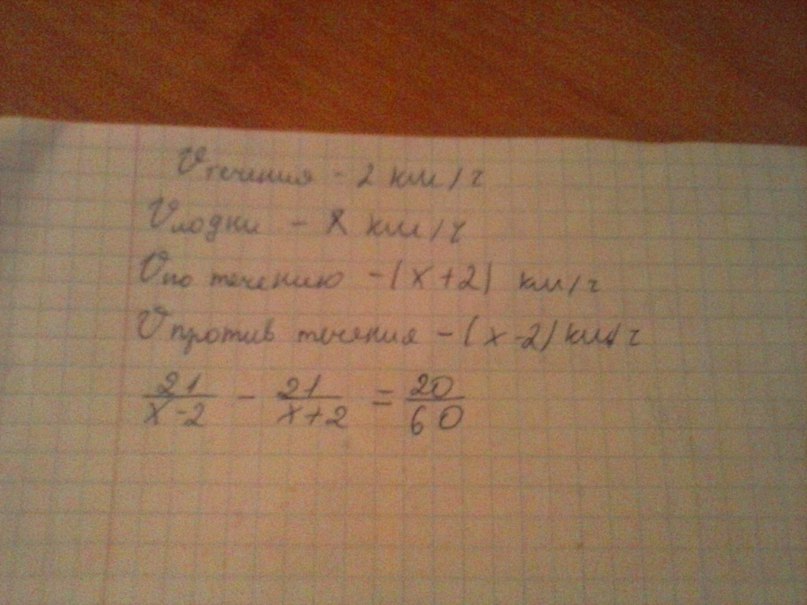 V течения - 2 км/ч
V лодки - x км/ч
V по течению - (x+2) км/ч
V против течения - (x-2) км/ч
21/(x-2) - 21/(x+2) = 20/60